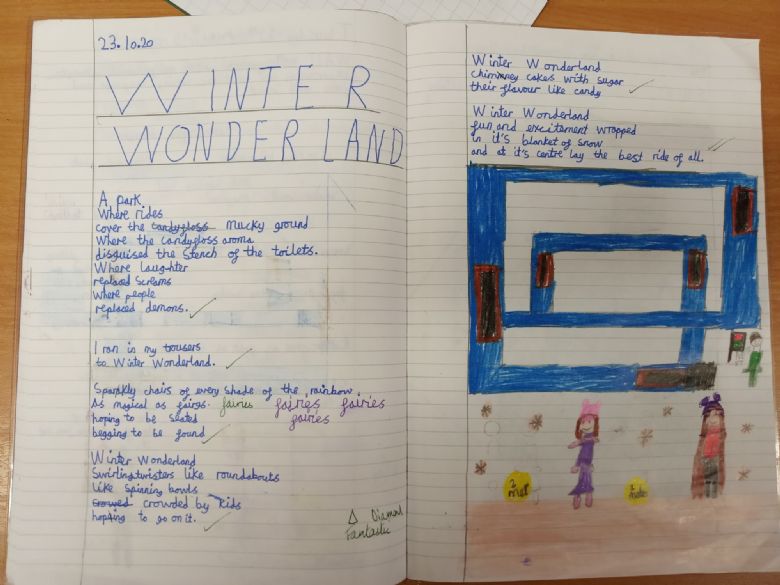 23.10.20
WINTER
WONDERLAND
A park
Where rides
cover the candygloss mucky ground
Where the candygloss aroma
disguised the stench of the toilets.
Where laughter
replaced screams
where people
replaced demons.
I ran in my trousers
to Winter Wonderland.
Sparkly chairs of every shade of the rainbow.
As magical as fairys. fairies fairies fairies
fairies
hoping to be seated
begging to be found
Winter Wonderland
Swirling twisters like roundabouts
like spinning bowls
crowed crowded by kids
hopeing to go on it.
Δ Diamond
Fantastic
Winter Wonderland
chimney cakes with sugar
their flavour like candy
Winter Wonderland
fun and excitement wrapped
in it's blanket of snow
and at it's centre lay the best ride of all.
2
2